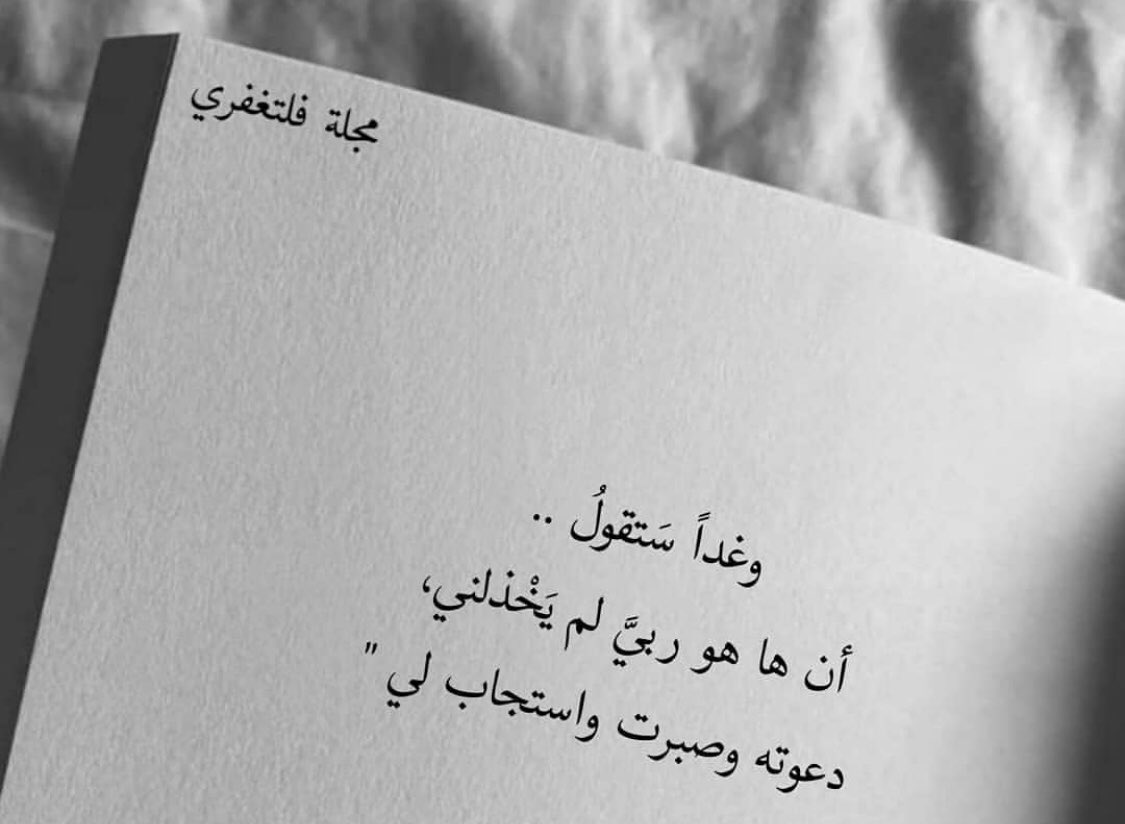 مجلة فلتغفري
وغداً سَتقولُ ..
أن ها هو ربيَّ لم يَخْذلني،
دعوته وصبرت واستجاب لي "